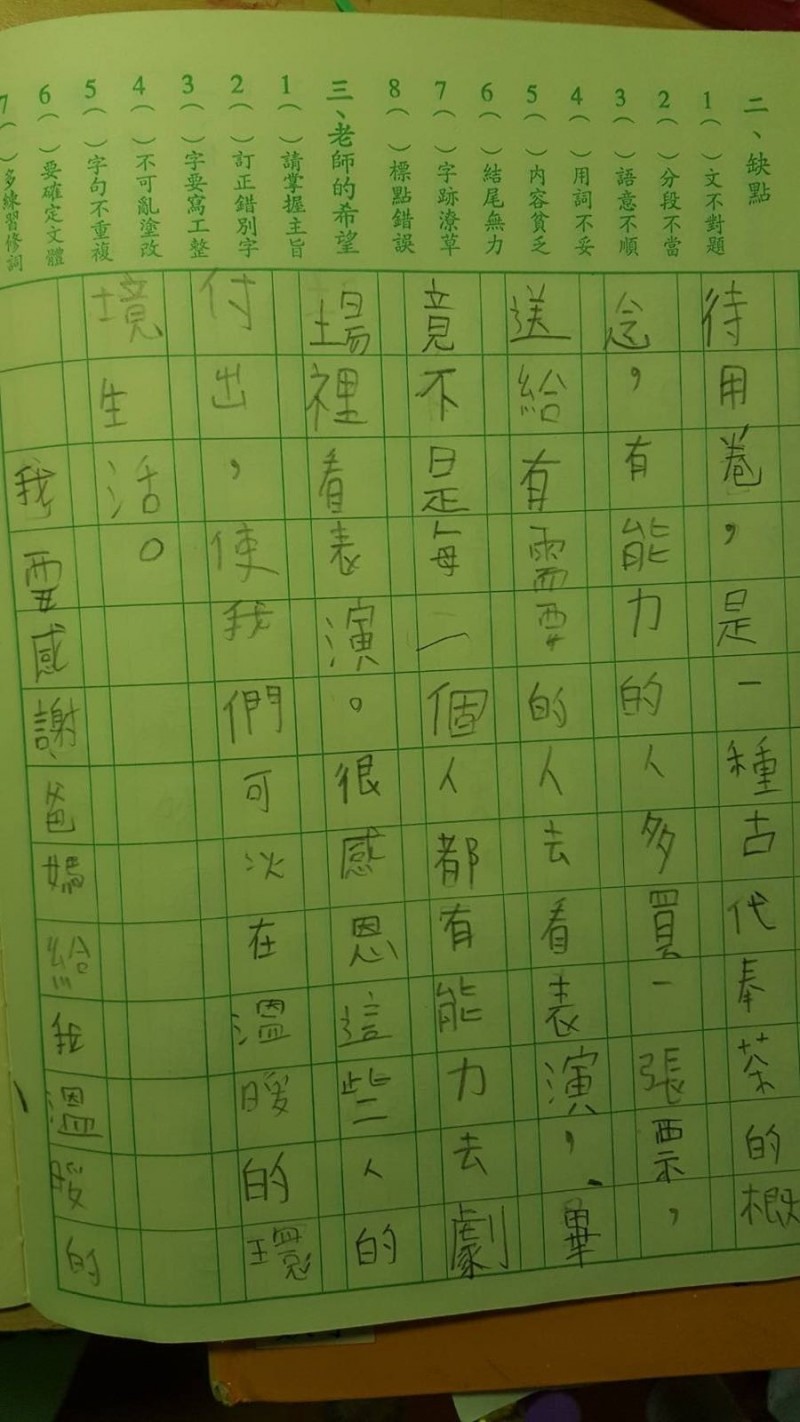 二、缺點
1（　）文不對題
2（　）分段不當
3（　）語意不順
4（　）用詞不妥
5（　）內容貧乏
6（　）結尾無力
7（　）字跡潦草
8（　）標點錯誤
三、老師的希望
1（　）請掌握主旨
2（　）訂正錯別字
3（　）字要寫工整
4（　）不可亂塗改
5（　）字句不重複
6（　）要確定文體
7（　）多練習修詞
待用卷，是一種古代奉茶的概
念，有能力的人多買一張票，
送給有需要的人去看表演，畢
竟不是每一個人都有能力去劇
場裡看表演。很感恩這些人的
付出，使我們可以在溫暖的環
境生活。
我要感謝爸媽給我溫暖的